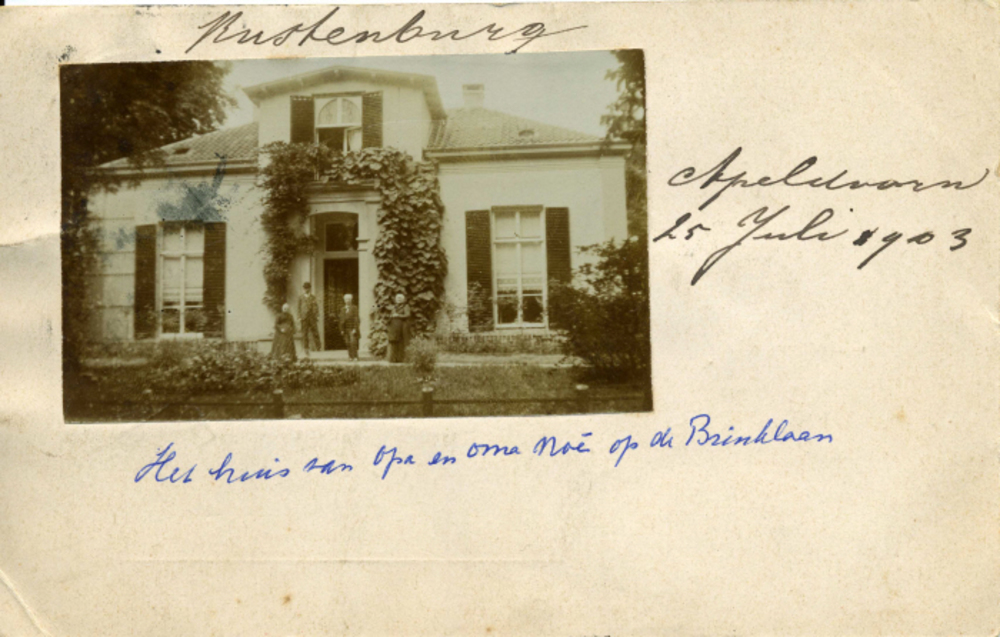 Rustenburg
Apeldoorn
25 Juli 1903
Het huis van Opa en oma Noë op de Brinklaan